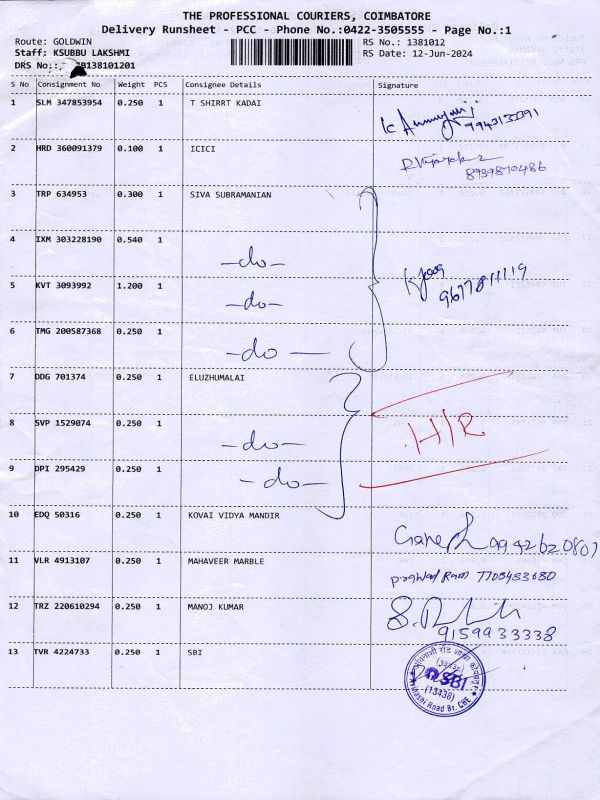 THE PROFESSIONAL COURIERS, COIMBATORE
Delivery Runsheet - PCC - Phone No.:0422-3505555 - Page No.:1
Route: GOLDWIN RS No.: 1381012
Staff: KSUBBU LAKSHMI RS Date: 12-Jun-2024
DRS No.: 1B138101201
S No Consignment No Weight PCS Consignee Details Signature
1 SLM 347853954 0.250 1 T SHIRRT KADAI
2 HRD 360091379 0.100 1 ICICI 8939870486
3 TRP 634953 0.300 1 SIVA SUBRAMANIAN
4 IXM 303228190 0.540 1 -do-
5 KVT 3093992 1.200 1 -do- 9677811119
6 TMG 200587368 0.250 1 -do-
7 DDG 701374 0.250 1 ELUZHUMALAI
8 SVP 1529074 0.250 1 -do- H/R
9 DPI 295429 0.250 1 -do-
10 EDQ 50316 0.250 1 KOVAI VIDYA MANDIR Ganesh 9942620807
11 VLR 4913107 0.250 1 MAHAVEER MARBLE
12 TRZ 220610294 0.250 1 MANOJ KUMAR 9159933338
13 TVR 4224733 0.250 1 SBI
SBI
(13438)
Road Br. CBE